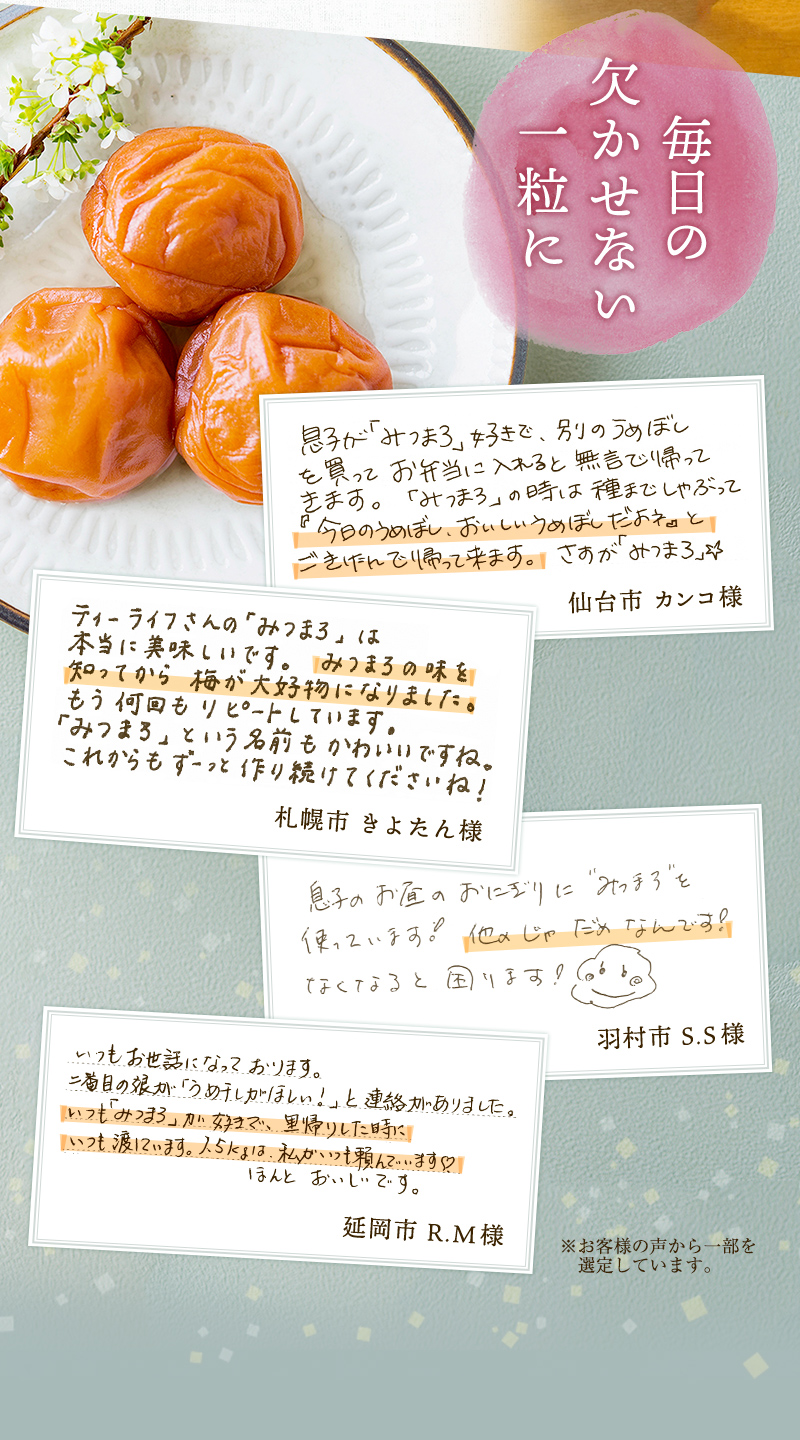 毎日の
欠かせない
一粒に
息子が「みつまろ」好きで、別のうめぼし
を買って お弁当に入れると 無言で帰って
きます。「みつまろ」の時は 種までしゃぶって
『今日のうめぼし、おいしいうめぼしだよネ』と
ごきげんで帰って来ます。 さすが「みつまろ」☆
仙台市 カンコ様
ティーライフさんの「みつまろ」は
本当に美味しいです。 みつまろの味を
知ってから 梅が大好物になりました。
もう何回もリピートしています。
「みつまろ」という名前もかわいいですね。
これからもずーっと作り続けてくださいね!
札幌市 きよたん様
息子のお昼の おにぎりに “みつまろ”を
使っています! 他のじゃ だめなんです!
なくなると 困ります!
羽村市 S.S様
いつもお世話になっております。
二番目の娘が「うめ干しがほしい!」と連絡がありました。
いつも「みつまろ」が好きで、里帰りした時に
いつも渡しています。1.5kgは、私がいつも頼んでいます♡
ほんと おいしいです。
延岡市 R.M様
※お客様の声から一部を
選定しています。